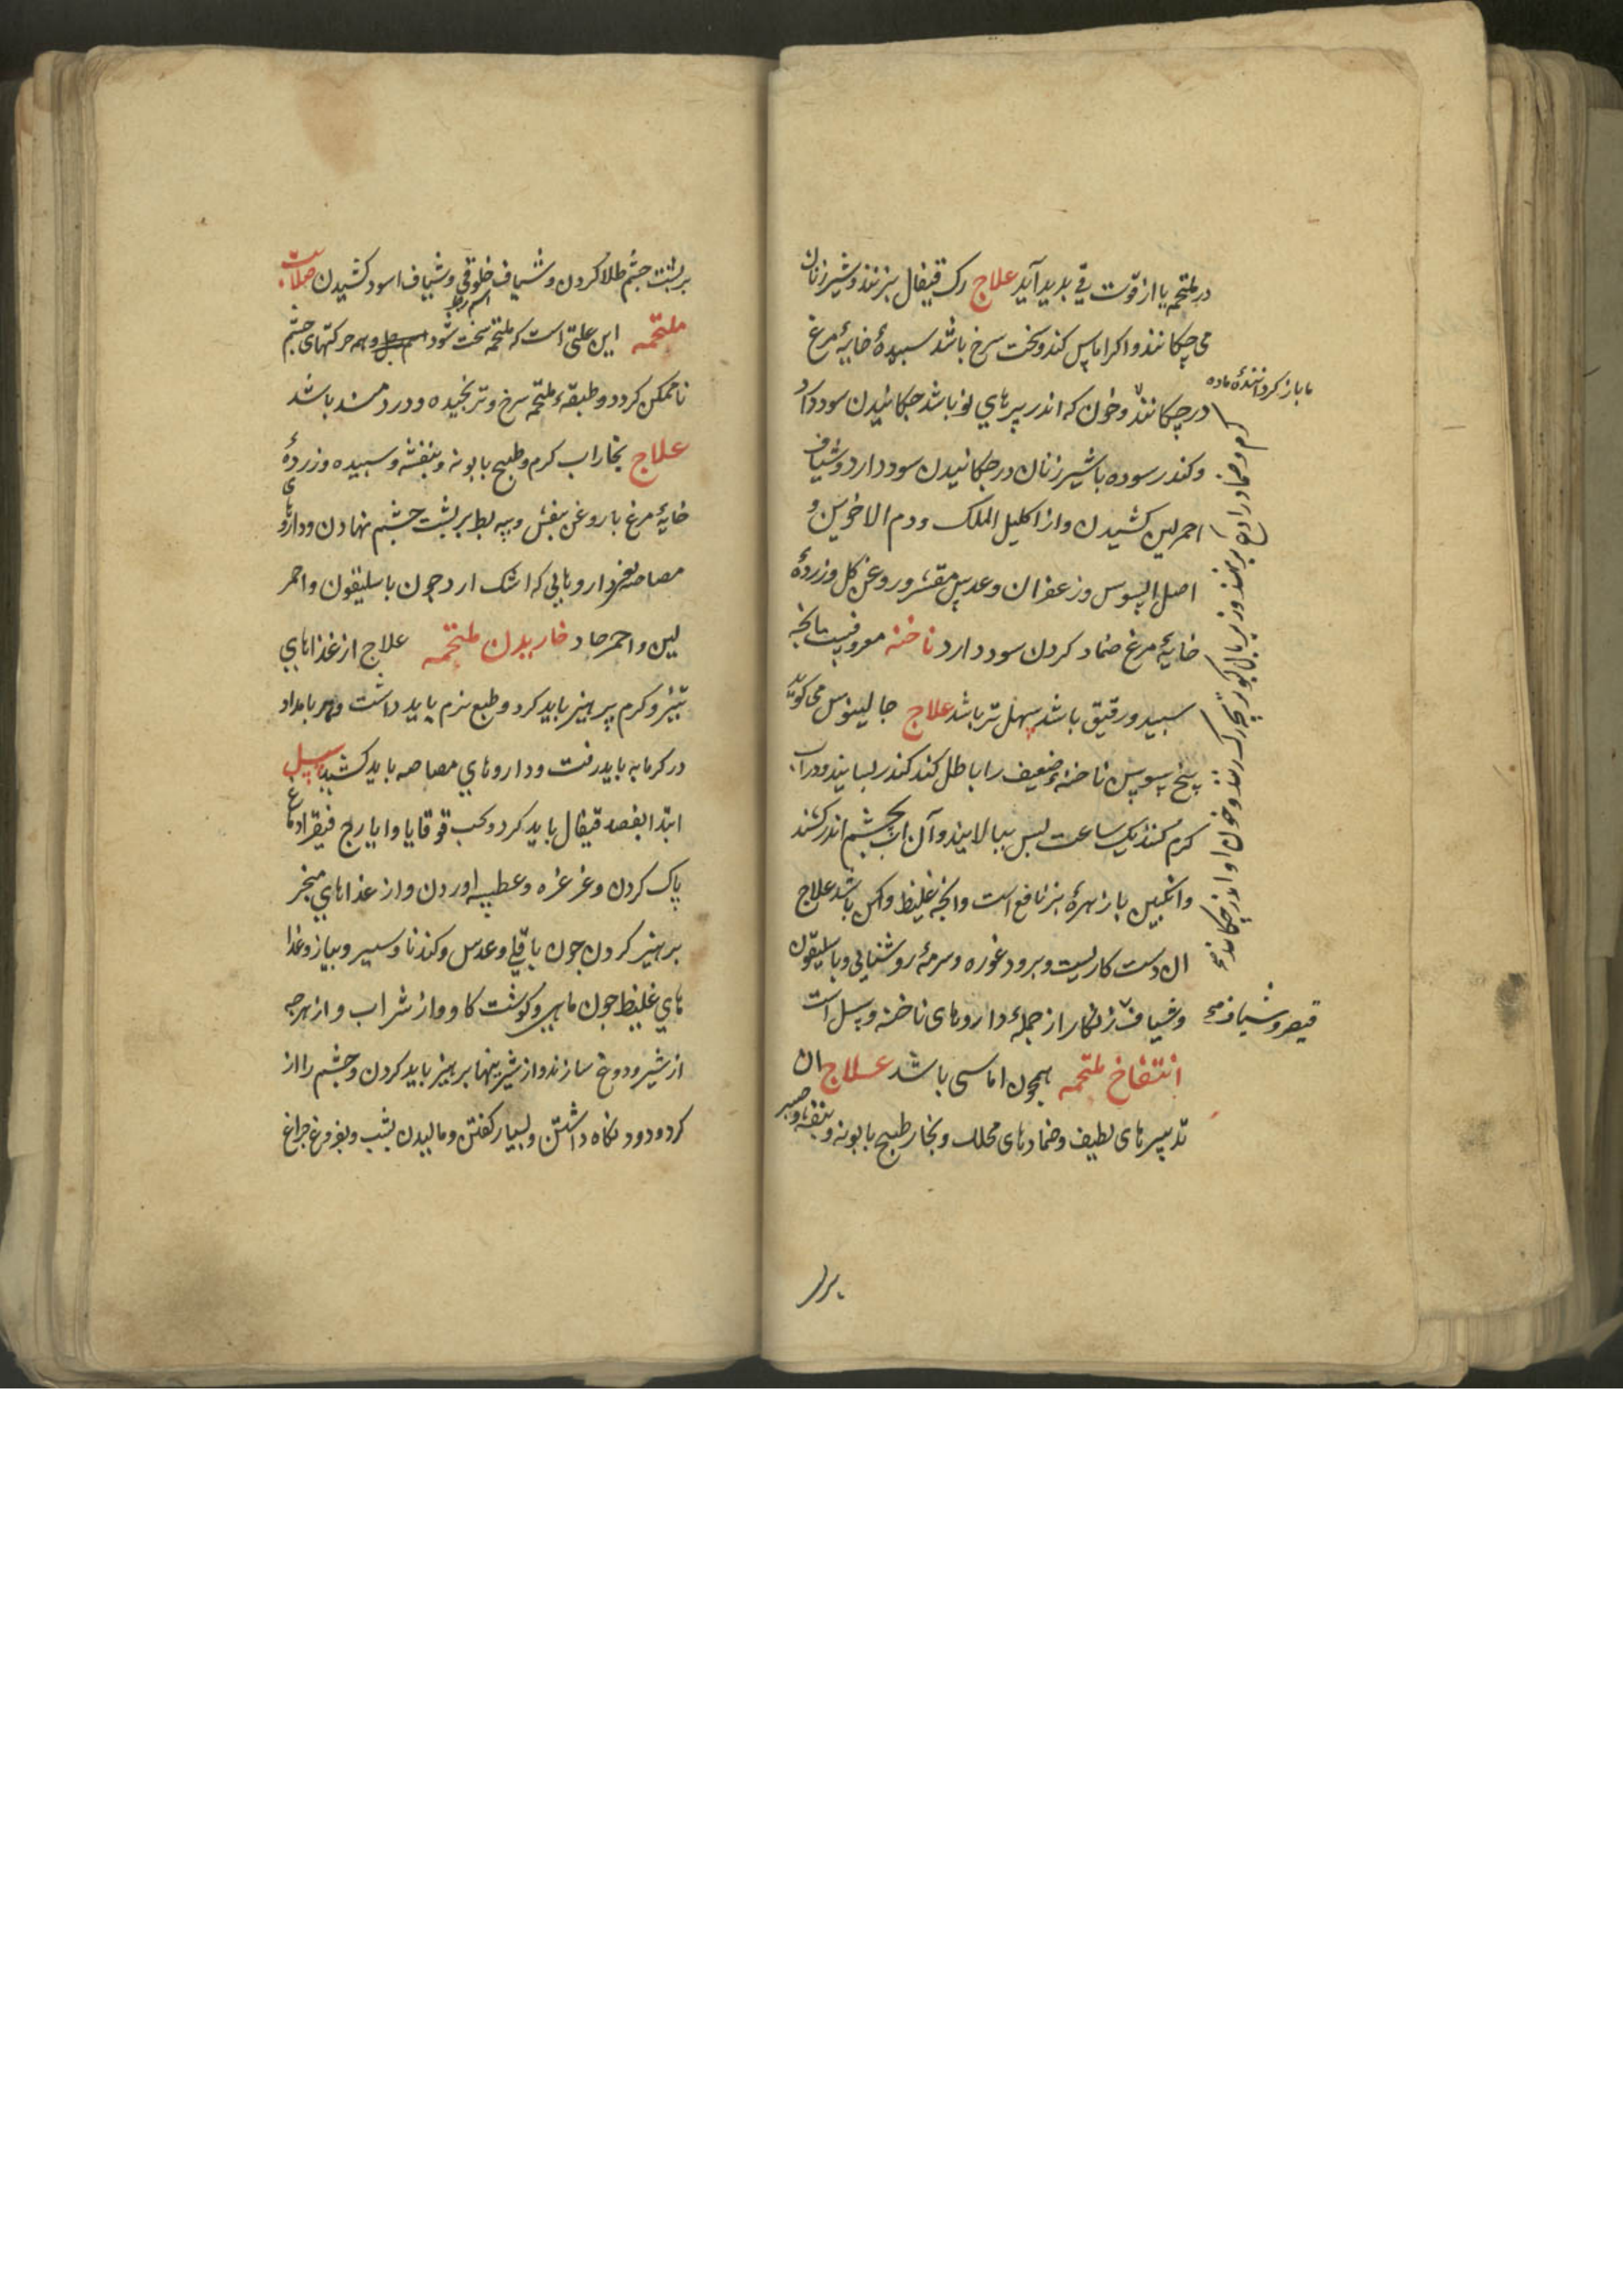 در ملتحمه یا از قوت قی بدید آید علاج رک قیفال بزنند و شیر زنان
می چکانند و اکر اماس کند و سخت سرخ باشد سبیدهٔ خایهٔ مرغ
در چکانند و خون که اندر پرهای نو باشد چکانیدن سود دارد
و کندر سوده با شیر زنان در چکانیدن سود دارد و شیاف
احمر لین کشیدن و از اکلیل الملک و دم الاخوین و
اصل السوس و زعفران و عدس مقشر و روغن کل و زردهٔ
خایهٔ مرغ ضماد کردن سود دارد ناخنه معروفست مانچه
سبید و رقیق باشد سهل تر باشد علاج جالینوس می کوید
بیخ سوس ناخنهٔ ضعیف را باطل کند کندر بسایند و در آب
کرم کنند یک ساعت بس ببالایند و آن آب بچشم اندر کشند
و انکبین با زهرهٔ بز نافع است وانچه غلیظ وکهن باشد علاج
ان دست کاریست و برود غوره و سرمهٔ روشنایی و باسلیقون
و شیاف زنکار از جملهٔ داروهای ناخنه و سبل است
انتفاخ ملتحمه همچون اماسی باشد علاج ان
تدبیرهای لطیف و ضمادهای محلل و بخار طبیخ بابونه و بنفشه و صبر
ما باز کردانندهٔ ماده
قیصر و شیاف
بر
بر بشت جشم طلا کردن و شیاف خلوقی و شیاف اسود کشیدن صلابت
ملتحمه این علتی است که ملتحمه سخت شود و همه حرکتهای جشم
ناممکن کردد و طبقهٔ ملتحمه سرخ و ترنجیده و دردمند باشد
علاج بخار اب کرم و طبیخ بابونه و بنفشه و سبیده و زردهٔ
خایهٔ مرغ با روغن بنفش و پیه بط بر بشت جشم نهادن و داروهای
داروهایی که اشک ارد چون باسلیقون و احمر
لین و احمر حاد خاریدن ملتحمه علاج از غذاهای
تیز و کرم پرهیز باید کرد و طبع نرم باید داشت و هر بامداد
در کرمابه باید رفت و داروهای مصاصه باید کشید سبل
ابتدا بفصد قیفال باید کرد و بحب قوقایا و ایارج فیقرا دماغ
پاک کردن و غرغره و عطسه اوردن و از غذاهای مبخر
برهیز کردن جون باقلی و عدس و کندنا و سیر و بیاز و غذا
های غلیظ جون ماهی و کوشت کاو و از شراب و از هرجه
از شیر و دوغ سازند و از شیرینها برهیز باید کردن و جشم را از
کرد و دود نکاه داشتن و بسیار کفتن و مالیدن بشب و بفروغ جراغ